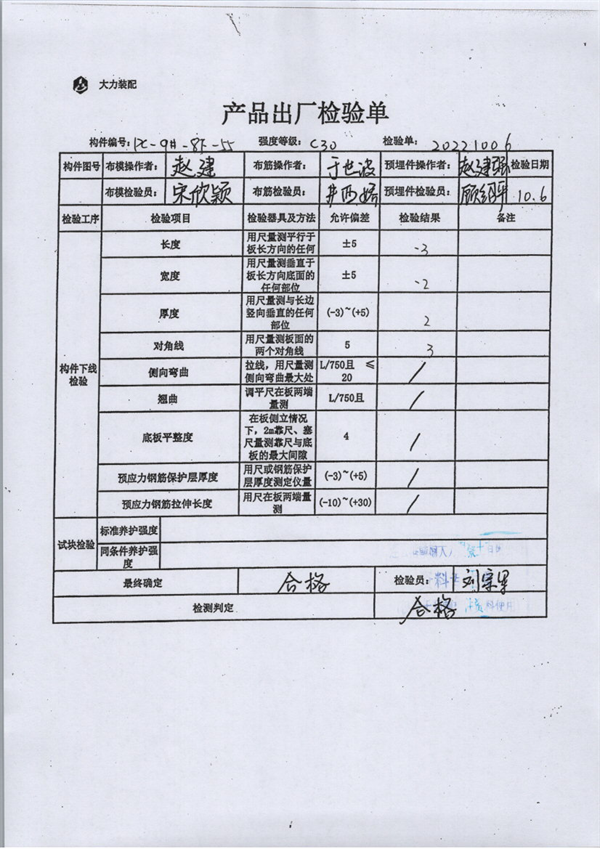 大力装配
产品出厂检验单
构件编号: PC-9#-8F-55 强度等级: C30 检验单: 20221006
构件图号 布模操作者: 赵建 布筋操作者: 于世波 预埋件操作者: 赵建强 检验日期
布模检验员: 宋欣颖 布筋检验员: 预埋件检验员: 10.6
检验工序 检验项目 检验器具及方法 允许偏差 检验结果 备注
构件下线检验
长度 用尺量测平行于板长方向的任何 ±5 -3
宽度 用尺量测垂直于板长方向底面的任何部位 ±5 -2
厚度 用尺量测与长边竖向垂直的任何部位 (-3)~(+5) 2
对角线 用尺量测板面的两个对角线 5 3
侧向弯曲 拉线，用尺量测侧向弯曲最大处 L/750且 ≤20 /
翘曲 调平尺在板两端量测 L/750且 /
底板平整度 在板侧立情况下，2m靠尺、塞尺量测靠尺与底板的最大间隙 4 /
预应力钢筋保护层厚度 用尺或钢筋保护层厚度测定仪量 (-3)~(+5) /
预应力钢筋拉伸长度 用尺在板两端量测 (-10)~(+30) /
试块检验 标准养护强度
同条件养护强度
最终确定 合格 检验员:
检测判定 合格